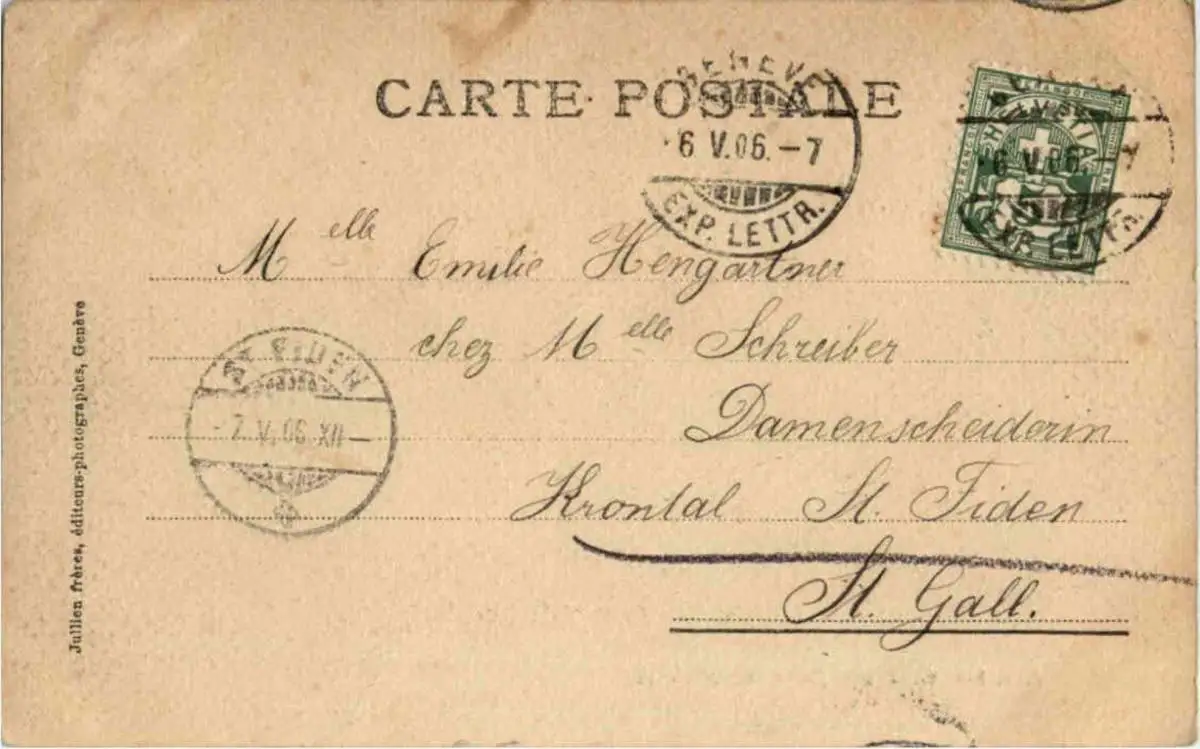 CARTE POSTALE
GENÈVE
6 V.06.-7
EXP. LETTR.
HELVETIA
FRANCO
6 V.06.-7
EXP. LETTR.
Melle Emilie Hengartner
chez Melle Schreiber
Damenscheiderin
Krontal St. Fiden
St. Gall.
ST. FIDEN
-7.V.06.XII-
Jullien frères, éditeurs-photographes, Genève